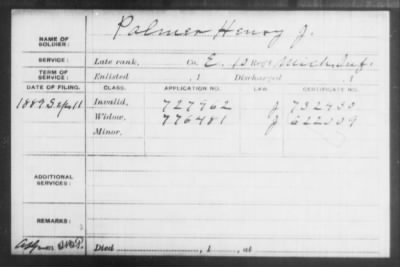 NAME OF SOLDIER: Palmer Henry J.
SERVICE: Late rank, Co. E, 13 Reg't Mich. Inf.
TERM OF SERVICE: Enlisted , 1 Discharged , 1
DATE OF FILING. CLASS. APPLICATION NO. LAW. CERTIFICATE NO.
1889 Sept 11 Invalid, 727962 J 732430
Widow, 776481 J 622339
Minor,
ADDITIONAL SERVICES:
REMARKS:
Died , 1 , at